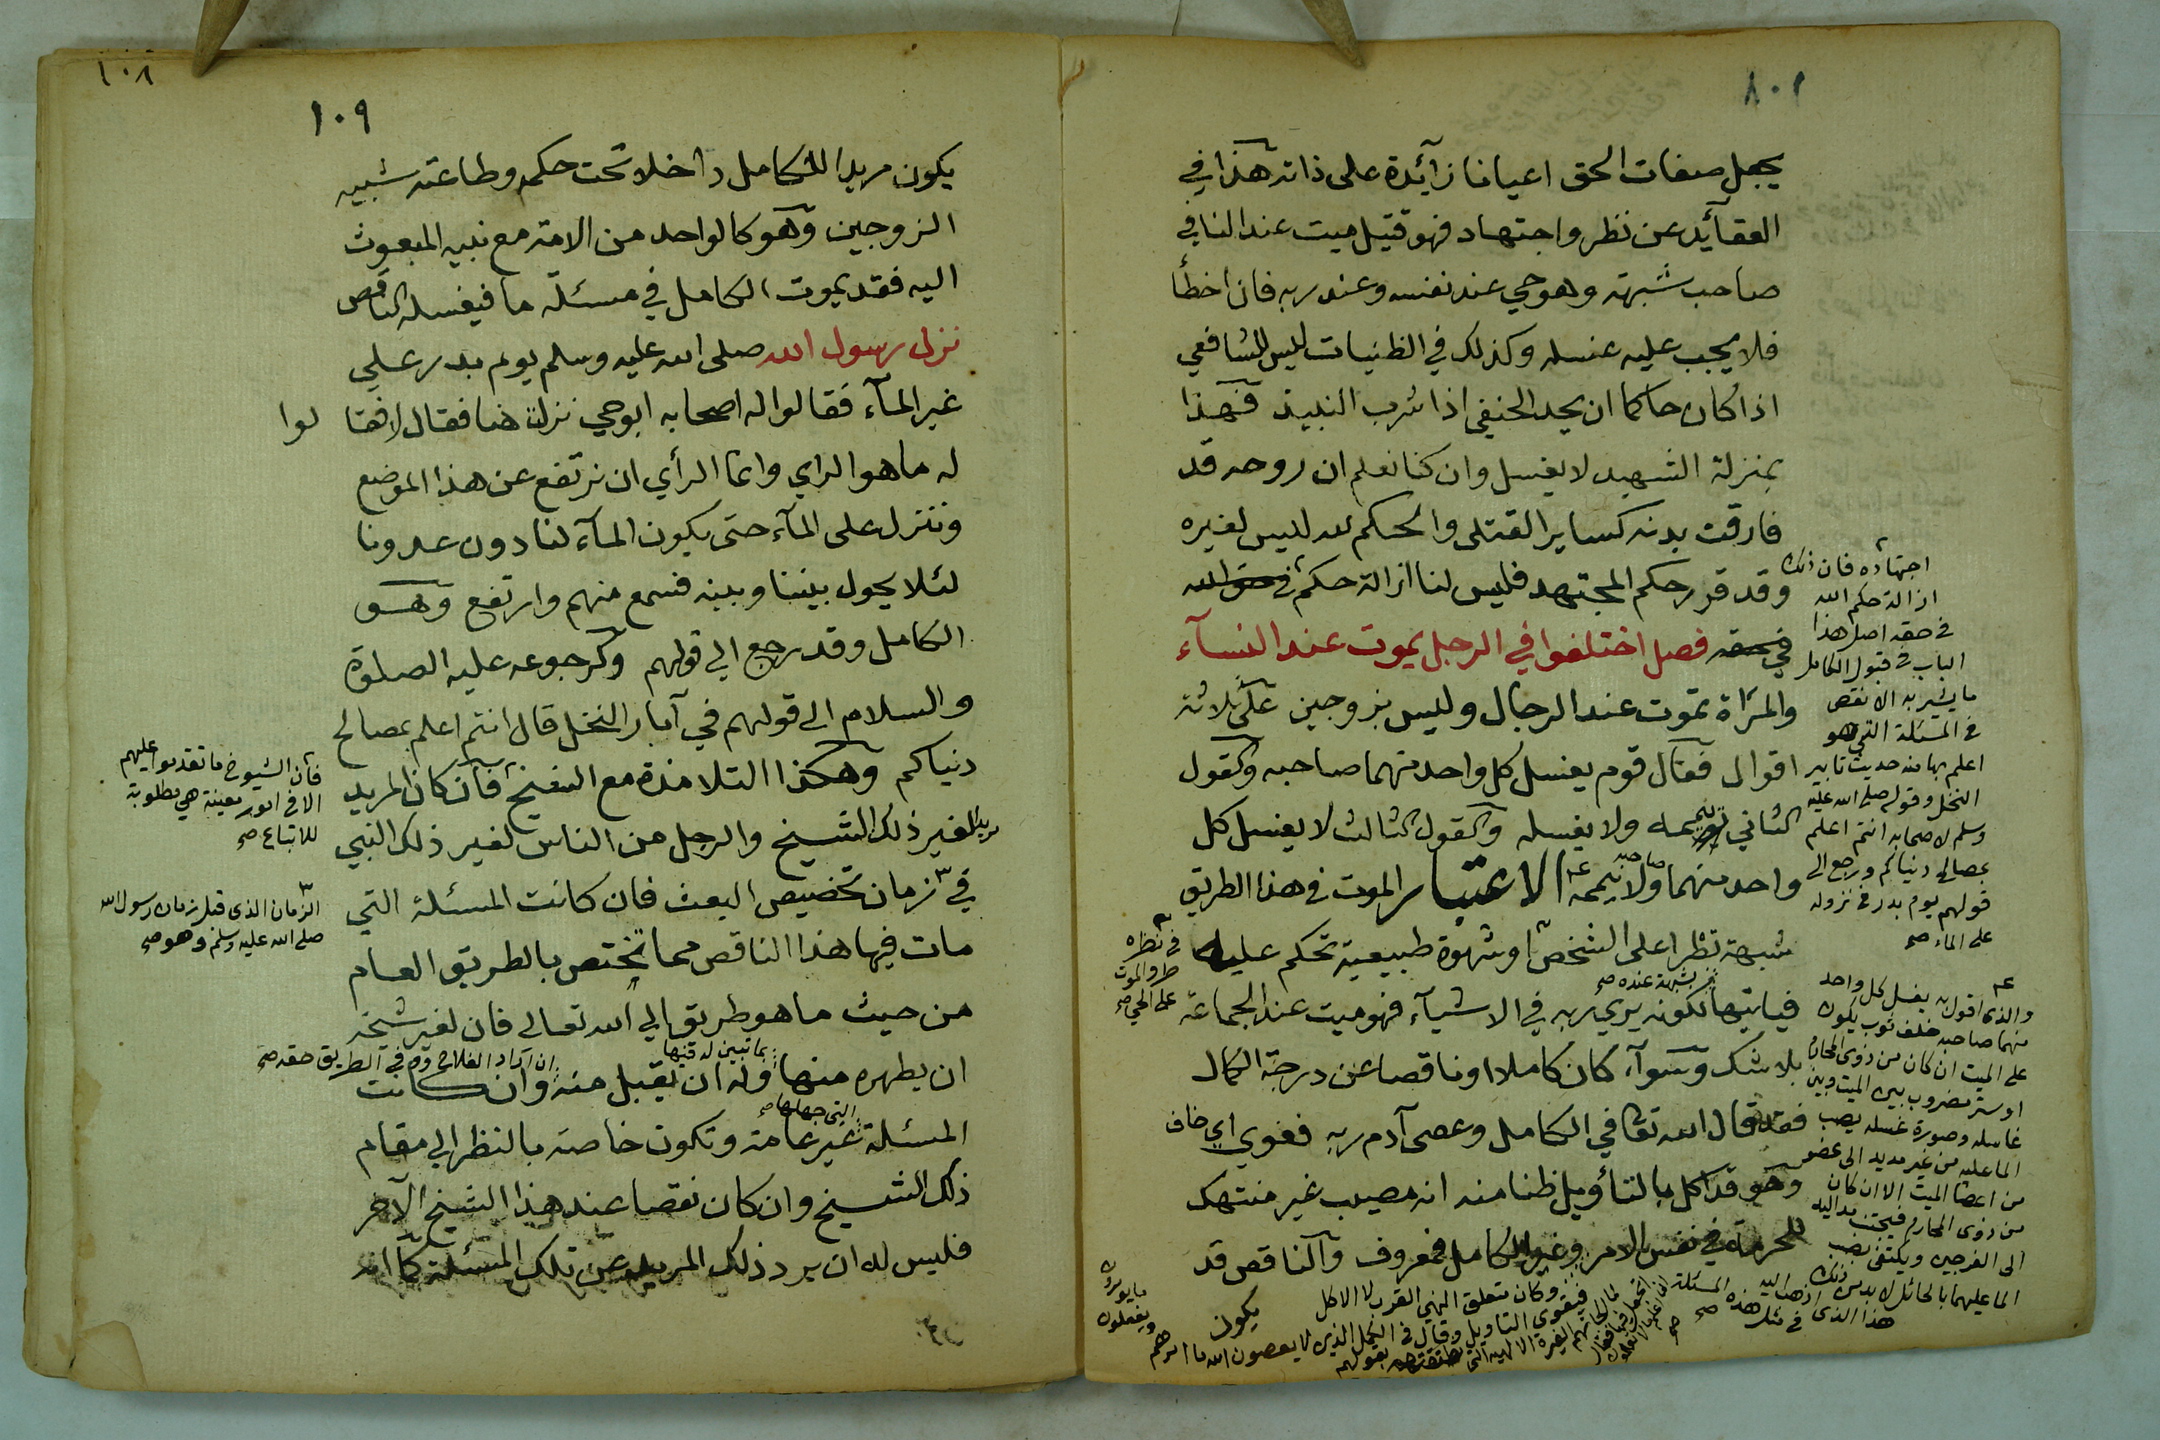 ١٠٨
يجعل صفات الحق اعيانا زآئدة على ذاته هذا في
العقآئد عن نظر واجتهاد فهو قتيل ميت عند النافي
صاحب شبهة وهو حي عند نفسه وعند ربه فان اخطأ
فلا يجب عليه غسله وكذلك في الظنيات ليس للشافعي
اذا كان حاكما ان يحد الحنفي اذا شرب النبيذ فهذا
بمنزلة الشهيد لا يغسل وان كنا نعلم ان روحه قد
فارقت بدنه كساير القتلى والحكم لله ليس لغيره
وقد قرر حكم المجتهد فليس لنا ازالة حكم في حق الله
في حقه فصل اختلفوا في الرجل يموت عند النسآء
والمرأة تموت عند الرجال وليس بزوجين على ثلاثة
اقوال فقال قوم يغسل كل واحد منهما صاحبه وكقول
الثاني تيممه ولا يغسله والقول الثالث لا يغسل كل
واحد منهما صاحبه ولا ييممه الاعتبار الموت في هذا الطريق
شبهة تطرا على الشخص او شهوة طبيعية تحكم عليه
فيأتيها لشبهة عنده صح لكونه يري ربه في الاشيآء فهو ميت عند الجماعة
بلا شك وسوآء كان كاملا او ناقصا عن درجة الكمال
فقد قال الله تعا في الكامل وعصى آدم ربه فغوي اي خاف
وهو قد اكل بالتأويل ظنا منه انه مصيب غير منتهك
للحرمة في نفس الامر وغير الكامل فمعروف والناقص قد
يكون
اجتهاده فان ذلك
ازالة حكم الله
في حقه اصل هذا
الباب في قبول الكامل
ما يشير به الانقص
في المسئلة التي هو
اعلم بها منه حديث تأبير
النخل وقوله صلى الله عليه
وسلم لاصحابه انتم اعلم
بمصالح دنياكم ورجع الى
قولهم يوم بدر في نزوله
على الماء صح
والذى اقول به يغسل كل واحد
منهما صاحبه خلف ثوب يكون
على الميت ان كان من ذوى المحارم
او ستر مضروب بين الميت وبين
غاسله وصورة غسله يصب
الماء عليه من غير مد يد الى عضو
من اعضا الميت الا ان كان
من ذوى المحارم فيجتنب مد اليد
الى الفرجين ويكتفى بصب
الماء عليهما بالحائل لا بد من ذلك
هذا الذى اذهب اليه في مثل هذه المسئلة صح
في نظره
طرو الموت
على الحي صح
فيقوى التاويل وكان متعلق النهي القرب لا الاكل
لا يعصون الله ما امرهم
ويفعلون
ما يؤمرون
١٠٨
١٠٩
يكون مريدا للكامل داخلا تحت حكمه وطاعته شبيه
الزوجين وهو كالواحد من الامة مع نبيه المبعوث
اليه فقد يموت الكامل في مسئلة ما فيغسله الناقص
نزل رسول الله صلى الله عليه وسلم يوم بدر على
غير المآء فقالوا له اصحابه ابوحي نزلت هنا فقال لا فقا لوا
له ما هو الراي وانما الرأي ان نرتفع عن هذا الموضع
وننزل على المآء حتى يكون المآء لنا دون عدونا
لئلا يحول بيننا وبينه فسمع منهم وارتفع وهو
الكامل وقد رجع الي قولهم وكرجوعه عليه الصلوة
والسلام الى قولهم في آبار النخل قال انتم اعلم بمصالح
دنياكم وهكذا التلامذة مع الشيخ فان كان المريد
مريدا لغير ذلك الشيخ والرجل من الناس لغير ذلك النبي
في زمان تخصيص البعث فان كانت المسئلة التي
مات فيها هذا الناقص مما تختص بالطريق العام
من حيث ما هو طريق الي الله تعالى فان لغير شيخه
ان يطهره منها بما تبين له فيها وله ان يقبل منه ان اراد الفلاح وفي الطريق حقه صح وان كانت
المسئلة التي جهلها صح غير عامة وتكون خاصة بالنظر الي مقام
ذلك الشيخ وان كان نقصا عند هذا الشيخ الآخر
فليس له ان يرد ذلك المريد عن تلك المسئلة كما انه
فان الشيوخ ما تقدموا عليهم
الا في امور معينة هي مطلوبة
للاتباع صح
الزمان الذى قبل زمان رسول الله
صلى الله عليه وسلم وهو صح